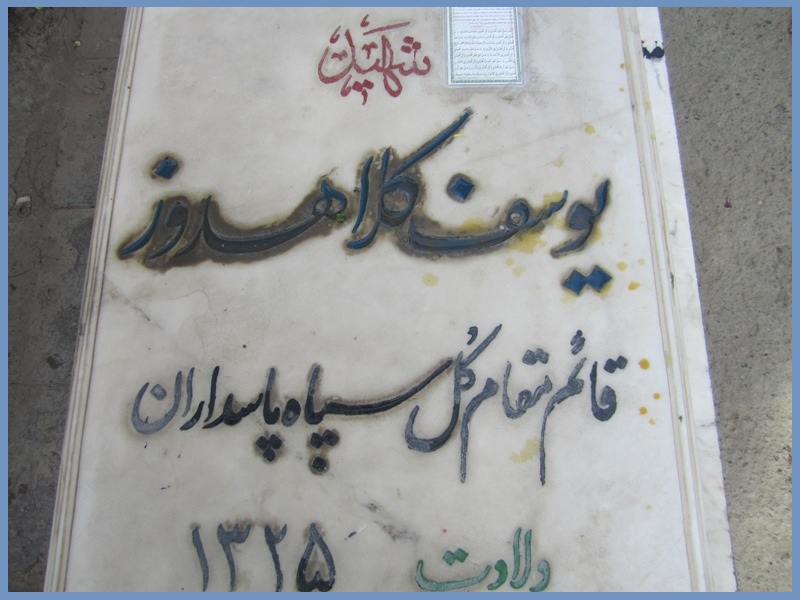 شهید
یوسف کلاهدوز
قائم مقام کل سپاه پاسداران
ولادت ۱۳۲۵